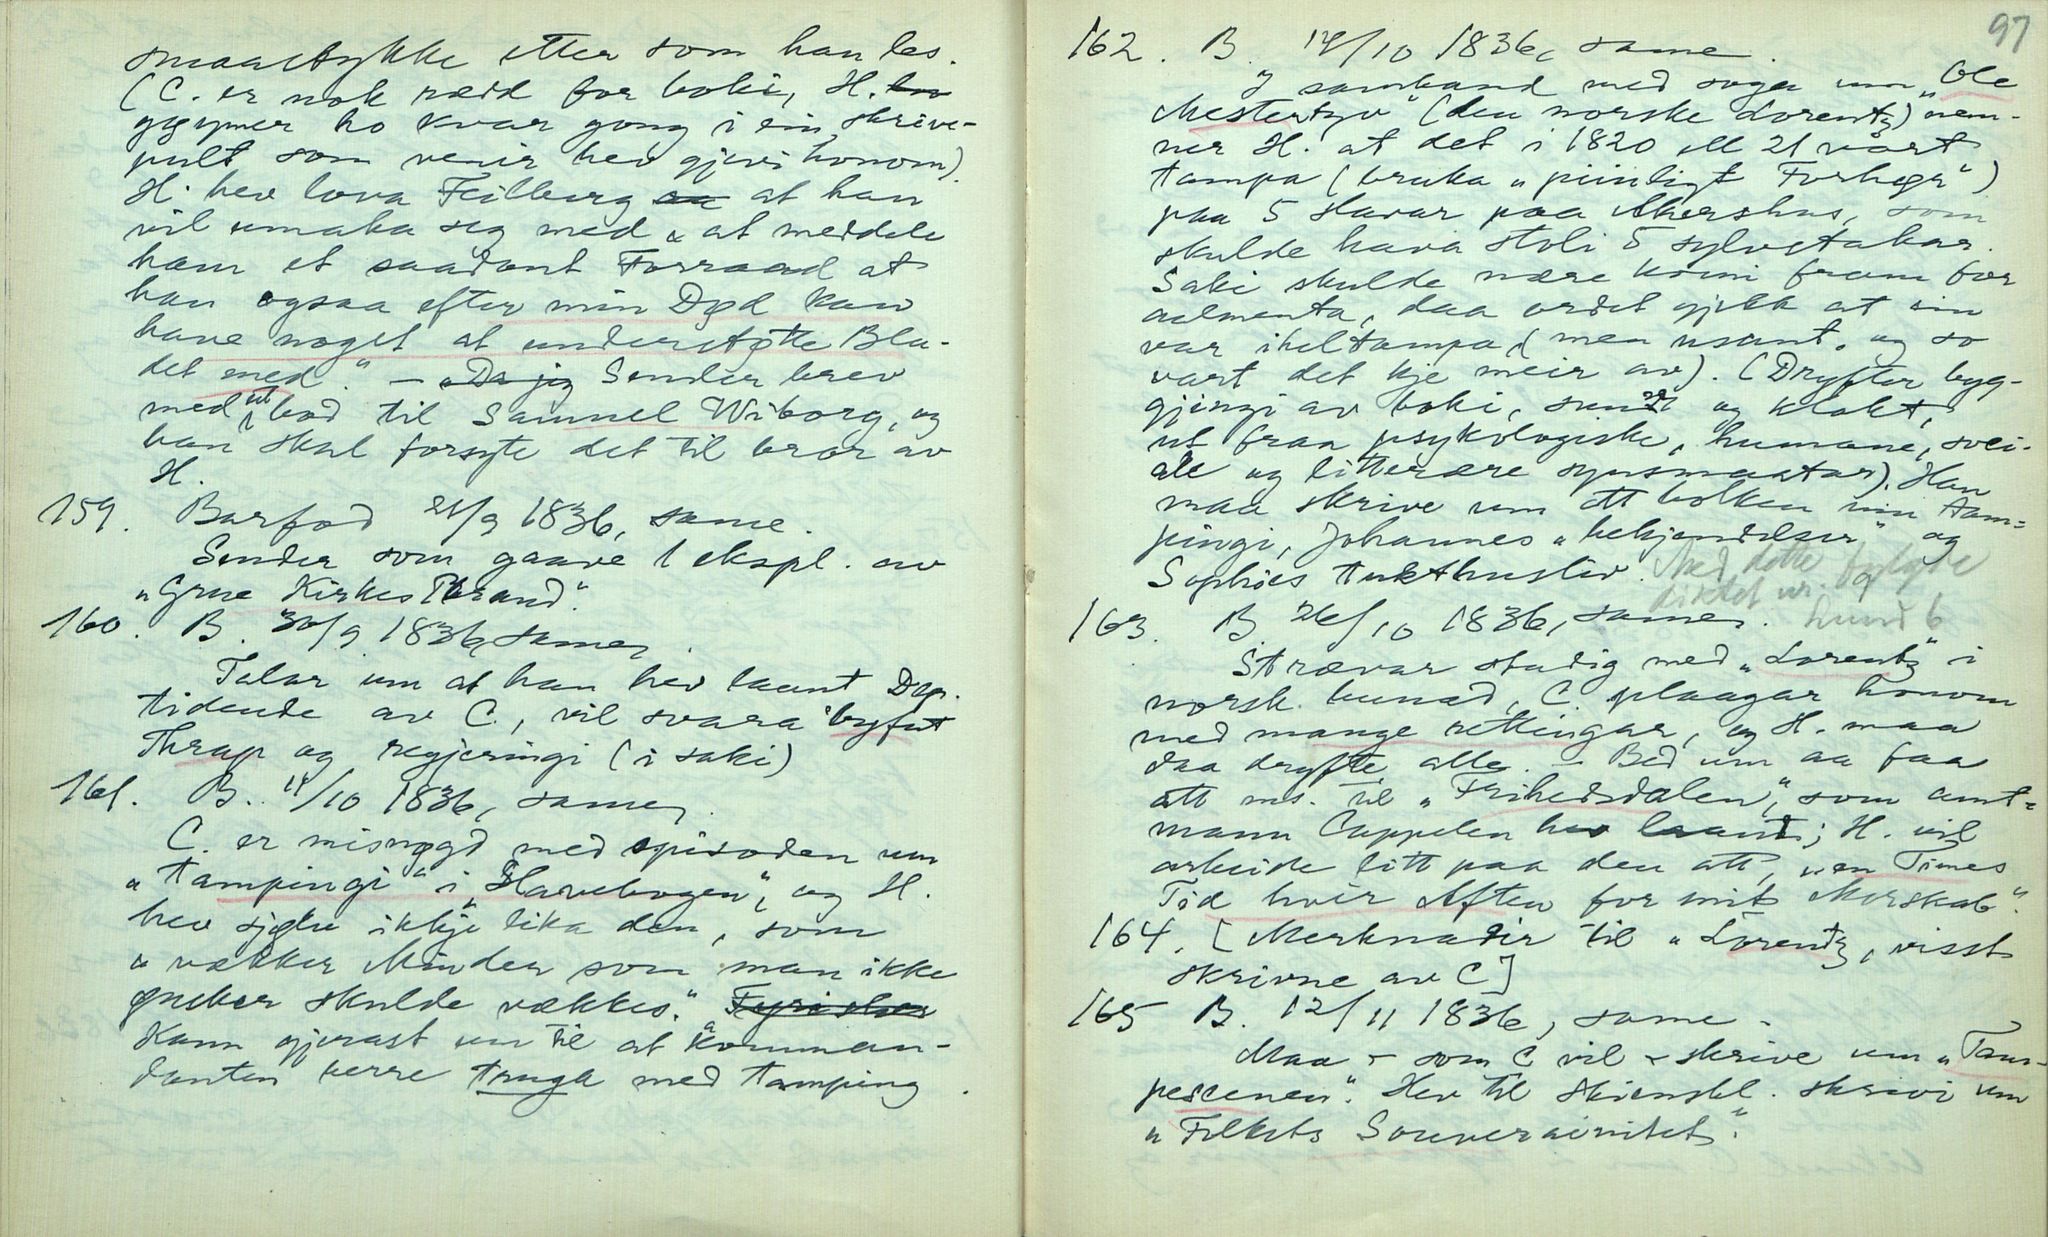 smaastykke etter som han les.
(C. er nok rædd for boki, H. hev
gøymer ho kvar gong i ein skrive-
pult som venir hev gjevi honom).
H. hev lova Feilberg aa at han
vil umaka seg med „at meddele
ham et saadant Forraad at
han ogsaa efter min Død kan
have noget at understøtte Bla-
det med." – „Da jeg Sender brev
med ut bod til Samuel Wiborg, og
han skal forsyte det til bror av
H.
159. Barfod 21/9 1836, same.
Sender som gaave 1 ekspl. av
„Grue Kirkes Brand".
160. B. 30/9 1836, same,
Talar um at han hev laant Dag-
tidende av C., vil svara byfut
Thrap og regjeringi (i saki)
161. B. 11/10 1836, same,
C. er misnøgd med episoden um
„tampingi" i „Slavebogen", og H.
hev sjølv ikkje lika den, som
„vækker Minder som man ikke
ønsker skulde vækkes."
Kann gjerast um til at komman-
danten berre truga med tamping.
97
162. B. 14/10 1836, same
I samband med soga um „Ole
Mestertyv" (den norske Lorentz) nem-
ner H. at det i 1820 ell 21 vart
tampa (bruka „piinligt Forhør")
paa 5 slavar paa Akershus, som
skulde hava stoli 5 sylvstakar.
Saki skulde være komi fram for
aalmenta, daa ordet gjekk at ein
var iheltampa, (men usant, og so
vart det kje meir av). (Drøfter byg-
gjingi av boki, sunt og klokt,
ut fraa psykologiske, humane, sosi-
ale og litterære synsmaatar). Han
maa skrive um att bolken um tam-
pingi, Johannes „bekjendelser" og
Sophies tukthusliv. Med dette fylgde
diktet
163. B. 26/10 1836, same.
Strævar stadig med „Lorentz" i
norsk bunad, C. plaagar honom
med mange rettingar, og H. maa
daa drøfte alle. – Bed um aa faa
att ms. til „Frihedsdalen", som amt-
mann Cappelen hev laant; H. vil
arbeide litt paa den att, „en Times
Tid hver Aften for mit Morskab".
164. [Merknader til „Lorentz", visst
skrivne av C]
165 B. 12/11 1836, same –
Maa – som C vil – skrive um „Tam-
pescenen". Hev til Skiensbl. skrivi um
„Folkets Souverainitet".